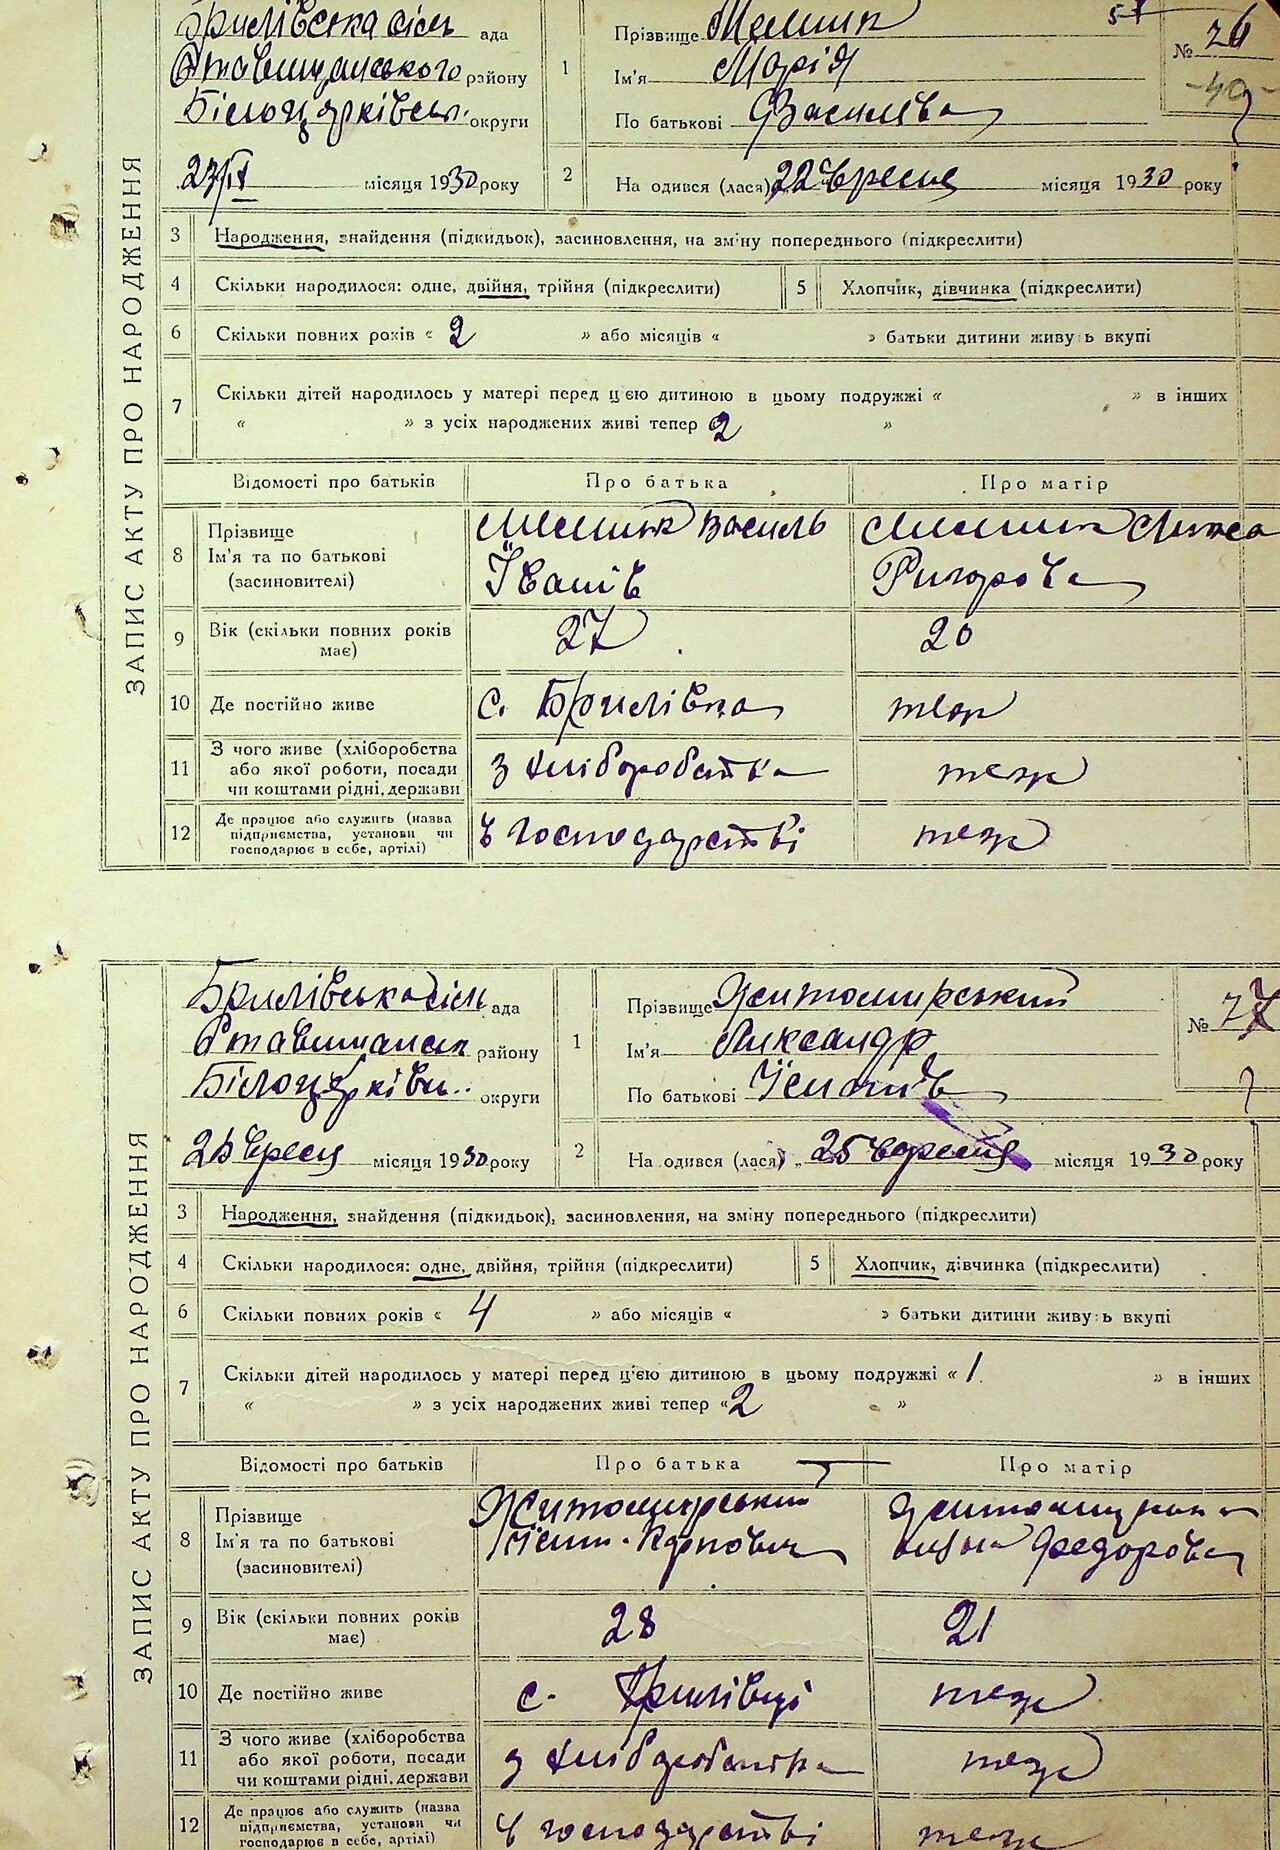 Брилівська сіль ада
Ставищанського району
Білоцерківськ. округи
23/IX місяця 1930 року
1
Прізвище Мельник
Ім'я Марія
По батькові Василева
57
№ 26
-40-
2
На одився (лася) „22 вересня місяця 1930 року
ЗАПИС АКТУ ПРО НАРОДЖЕННЯ
3 Народження, знайдення (підкидьок), засиновлення, на зміну попереднього (підкреслити)
4 Скільки народилося: одне, двійня, трійня (підкреслити) 5 Хлопчик, дівчинка (підкреслити)
6 Скільки повних років « 2 » або місяців « » батьки дитини живу ь вкупі
7 Скільки дітей народилось у матері перед ц'єю дитиною в цьому подружжі « » в інших
« » з усіх народжених живі тепер 2 »
Відомості про батьків Про батька Про матір
8
Прізвище
Ім'я та по батькові
(засиновителі)
Мельник Василь
Іванів
Мельник
Ригорова
9
Вік (скільки повних років
має)
27
20
10 Де постійно живе с. Брилівка теж
11
З чого живе (хліборобства
або якої роботи, посади
чи коштами рідні, держави
з хліборобства
теж
12
Де працює або служить (назва
підприємства, установи чи
господарює в себе, артілі)
в господарстві
теж
Брилівська сіль ада
Ставищанськ району
Білоцерківськ.. округи
25 вересн місяця 1930 року
1
Прізвище Житомирський
Ім'я Олександр
По батькові
№ 27
2
На одився (лася) „ 25 вересня місяця 1930 року
ЗАПИС АКТУ ПРО НАРОДЖЕННЯ
3 Народження, знайдення (підкидьок), засиновлення, на зміну попереднього (підкреслити)
4 Скільки народилося: одне, двійня, трійня (підкреслити) 5 Хлопчик, дівчинка (підкреслити)
6 Скільки повних років « 4 » або місяців « » батьки дитини живу ь вкупі
7 Скільки дітей народилось у матері перед ц'єю дитиною в цьому подружжі « 1 » в інших
« » з усіх народжених живі тепер «2 »
Відомості про батьків Про батька Про матір
8
Прізвище
Ім'я та по батькові
(засиновителі)
Житомирський
Карпович
Житомирська
Федорова
9
Вік (скільки повних років
має)
28
21
10 Де постійно живе с. Брилівці теж
11
З чого живе (хліборобства
або якої роботи, посади
чи коштами рідні, держави
з хліборобства
теж
12
Де працює або служить (назва
підприємства, установи чи
господарює в себе, артілі)
в господарстві
теж